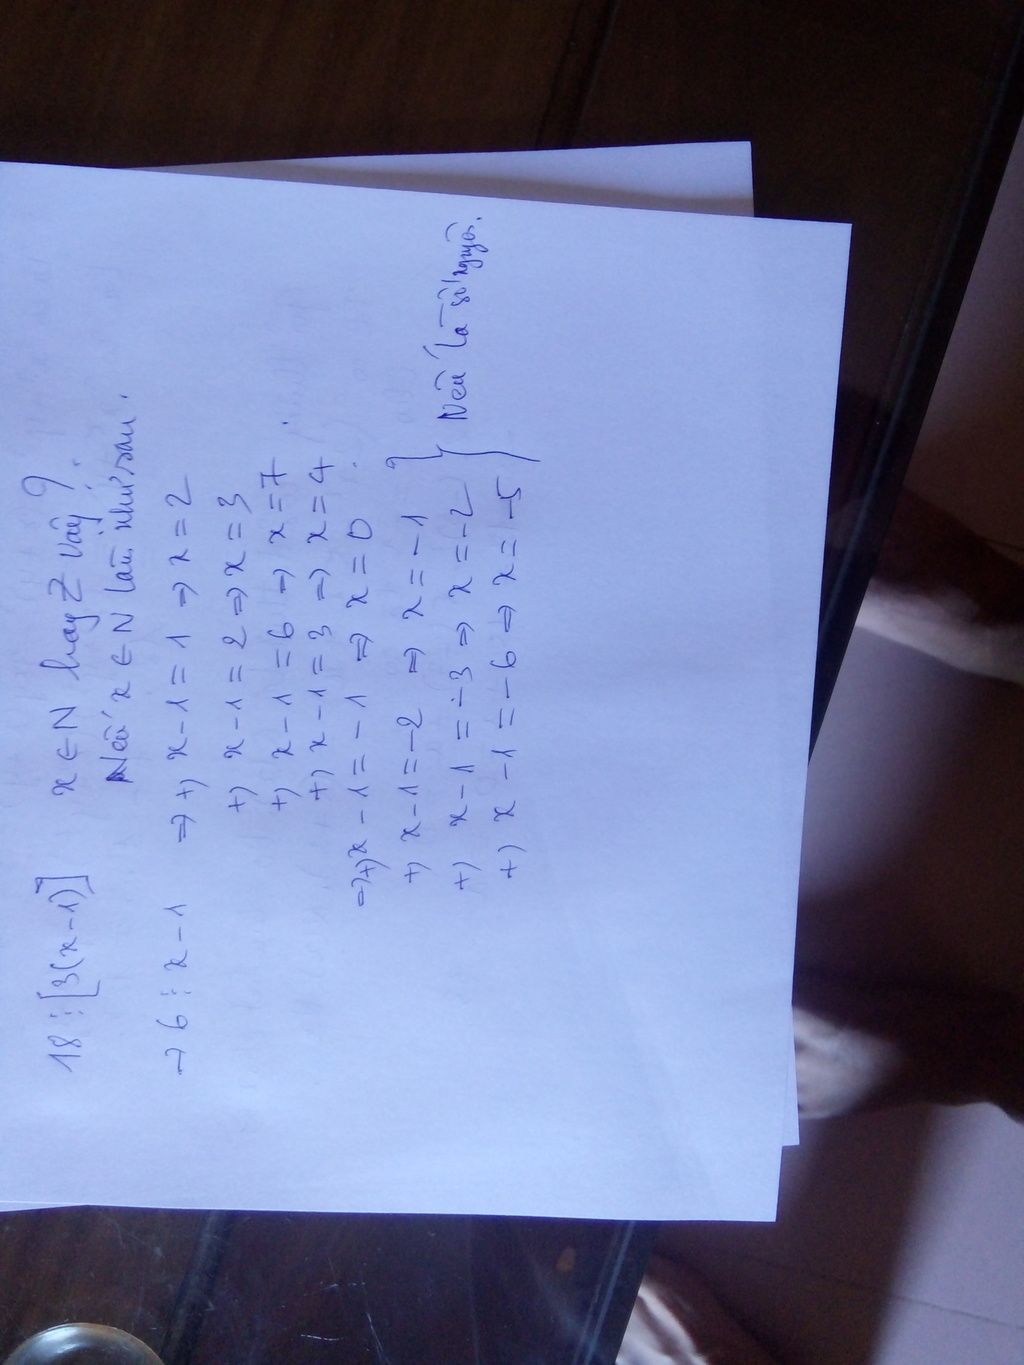 18 ⋮ [3(x-1)]
x ∈ N hay Z vậy ?
Nếu x ∈ N làm như sau .
→ 6 ⋮ x - 1 ⇒ +) x - 1 = 1 ⇒ x = 2
+) x - 1 = 2 ⇒ x = 3
+) x - 1 = 6 ⇒ x = 7 .
+) x - 1 = 3 ⇒ x = 4
⇒ +) x - 1 = - 1 ⇒ x = 0 .
+) x - 1 = - 2 ⇒ x = - 1
+) x - 1 = - 3 ⇒ x = - 2 } Nếu là số nguyên.
+) x - 1 = - 6 ⇒ x = - 5